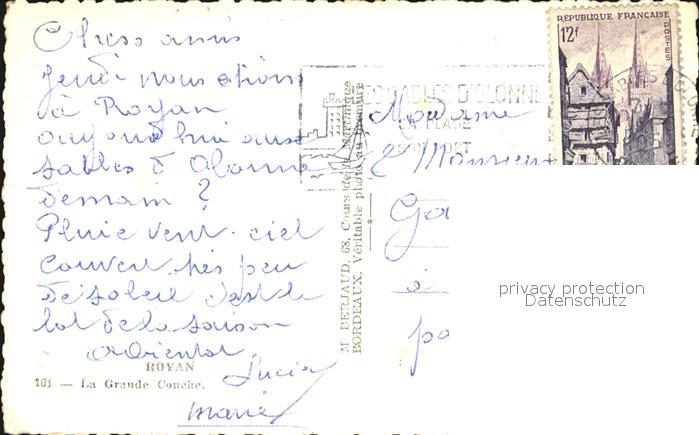 Chers amis
Jeudi nous étions
à Royan
aujourd'hui aux
Sables d'Olonne
demain ?
Pluie vent. ciel
couvert. très peu
de soleil c'est le
lot de la saison
A bientôt
Lucie
Marie
ROYAN
161 — La Grande Conche.
M BERJAUD, 68, Cours de la Martinique
BORDEAUX. Véritable photo au bromure
REPUBLIQUE FRANÇAISE
POSTES
12f
LES SABLES D'OLONNE
LA PLAGE
SON PORT
Madame
& Monsieur
Ga
à
po
privacy protection
Datenschutz